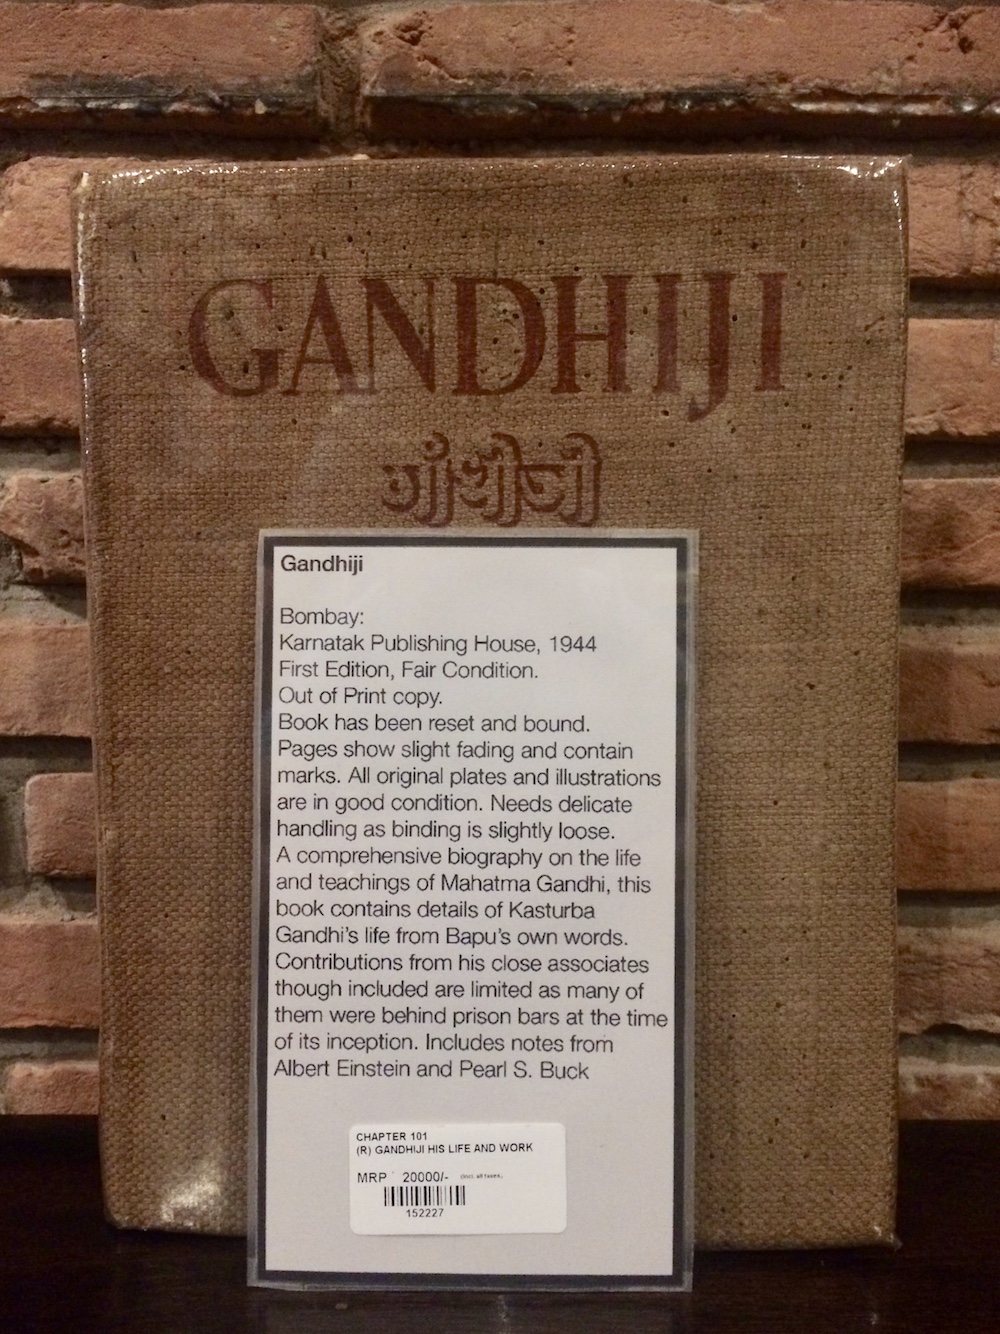 GANDHIJI
गांधीजी
Gandhiji
Bombay:
Karnatak Publishing House, 1944
First Edition, Fair Condition.
Out of Print copy.
Book has been reset and bound.
Pages show slight fading and contain
marks. All original plates and illustrations
are in good condition. Needs delicate
handling as binding is slightly loose.
A comprehensive biography on the life
and teachings of Mahatma Gandhi, this
book contains details of Kasturba
Gandhi's life from Bapu's own words.
Contributions from his close associates
though included are limited as many of
them were behind prison bars at the time
of its inception. Includes notes from
Albert Einstein and Pearl S. Buck
CHAPTER 101
(R) GANDHIJI HIS LIFE AND WORK
MRP 20000/- (Incl. all taxes)
152227